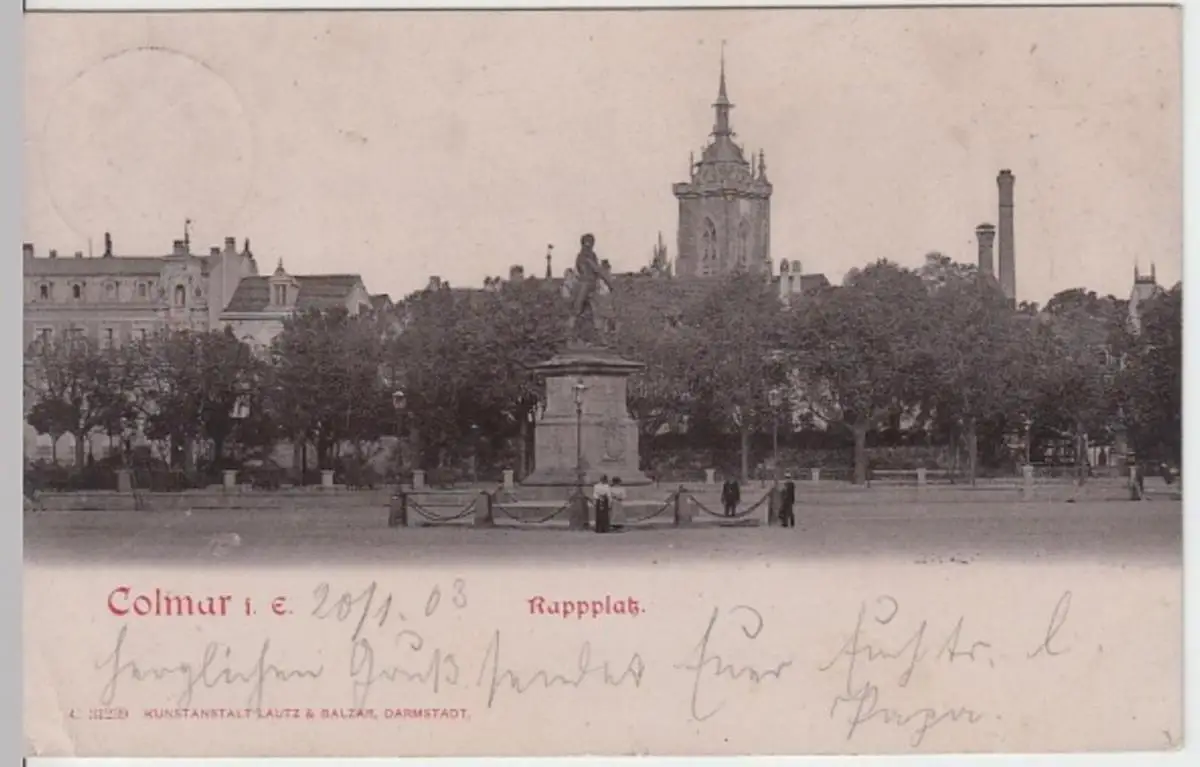 Colmar i. E. 20/1. 03 Rappplatz.
Herzlichen Gruß sendet Euer
Papa.
KUNSTANSTALT LAUTZ & BALZAR, DARMSTADT.